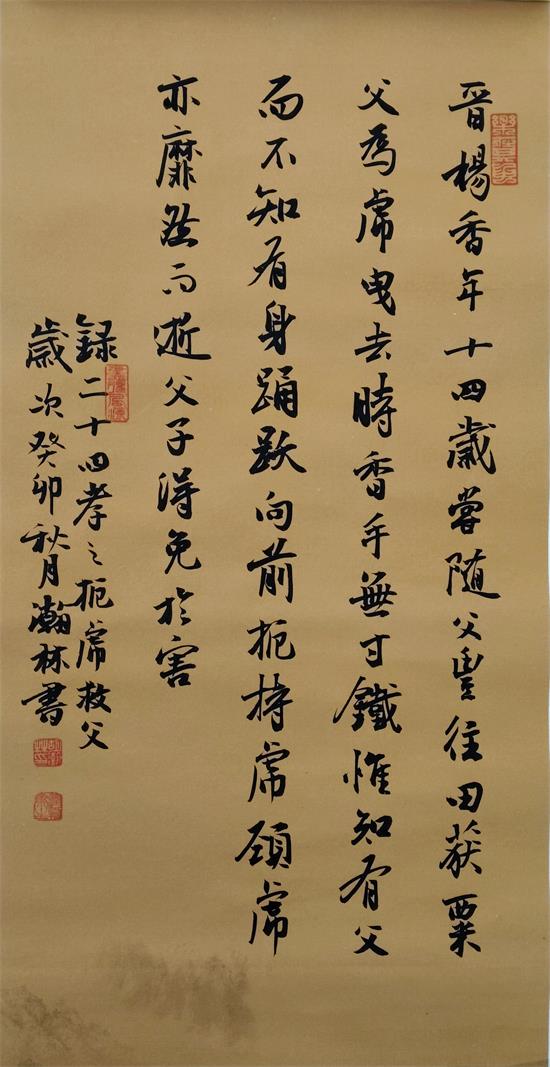 晋楊香年十四歲嘗随父豐往田获粟
父為虎曳去時香手無寸鐵惟知有父
而不知有身踊跃向前扼持虎頸虎
亦靡然而逝父子得免於害
録二十四孝之扼虎救父
歲次癸卯秋月瀚林書